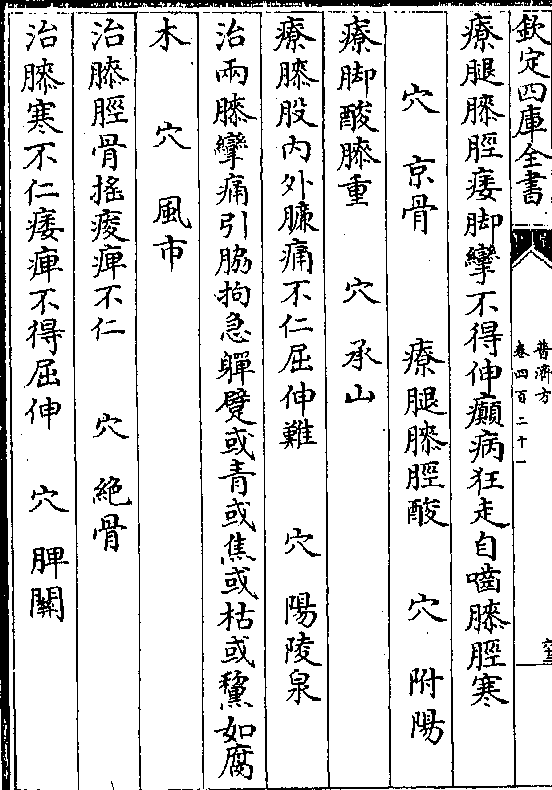 欽定四庫全書
普濟方
卷四百二十一
療腿膝脛痿脚攣不得伸癲病狂走自嚙膝脛寒
穴 京骨 療腿膝脛酸 穴 附陽
療脚酸膝重 穴 承山
療膝股内外臁痛不仁屈伸難 穴 陽陵泉
治兩膝攣痛引脇拘急軃躄或青或焦或枯或黧如腐
木 穴 風市
治膝脛骨搖痠痺不仁 穴 絶骨
治膝寒不仁痿痺不得屈伸 穴 脾關